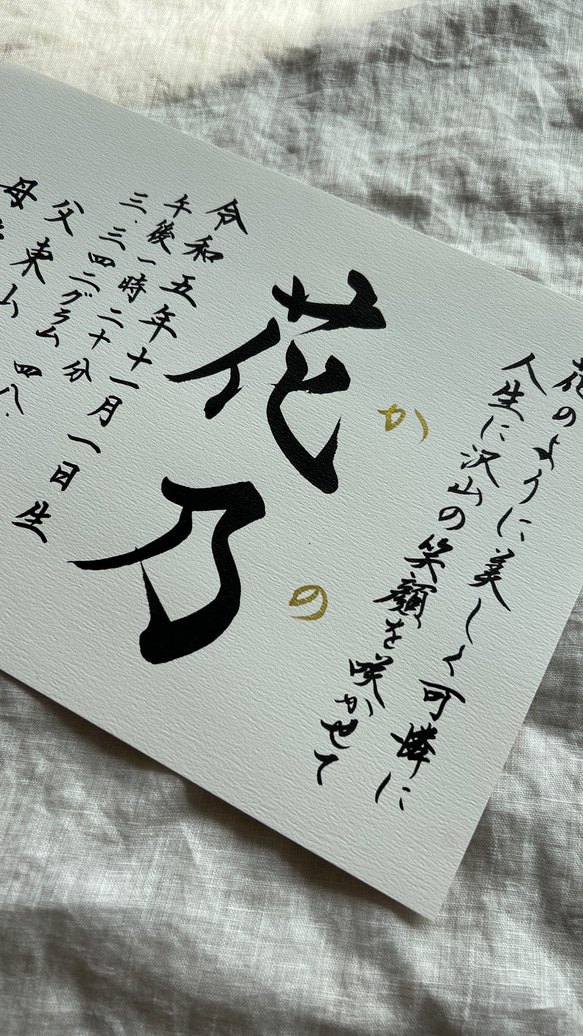 花のように美しく可憐に
人生に沢山の笑顔を咲かせて
花乃
かの
令和五年十一月一日生
午後一時二十分
三.三四二グラム
父 東山
母